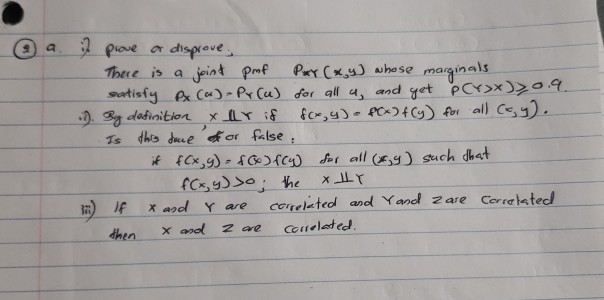 ② a. i) prove or disprove;
There is a joint pmf Pxy (x,y) whose marginals
satisfy Px (u) = Py (u) for all u, and yet P(Y>X) ≥ 0.9.
ii). By definition x ⫫ Y if f(x,y) = f(x) f(y) for all (x,y).
Is this true or false:
if f(x,y) = f(x) f(y) for all (x,y) such that
f(x,y) > 0; the x ⫫ Y
iii) If x and Y are correlated and Y and z are correlated
then x and z are correlated.